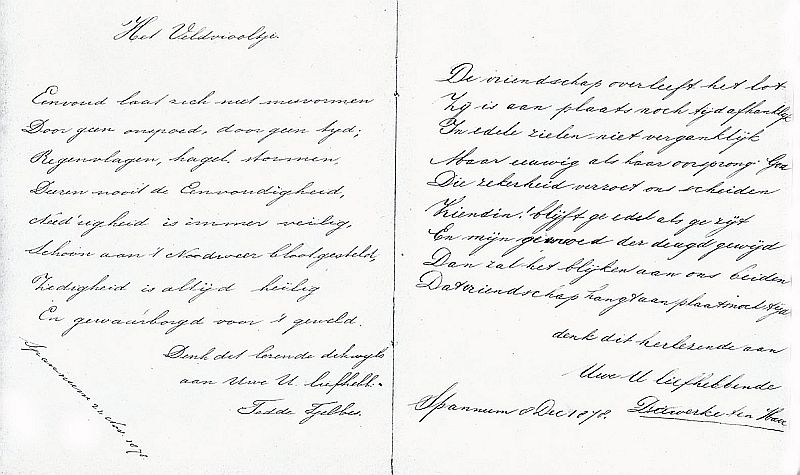 Het Veldviooltje.
Eenvoud laat zich niet misvormen
Door geen onspoed, door geen tyd;
Regenvlagen, hagel, stormen,
Deren nooit de Eenvoudigheid,
Need'righeid is immer veilig,
Schoon aan 't Noodweer blootgesteld,
Zedigheid is altijd heilig
En gewaarborgd voor 't geweld.
Denk dit lezende dikwyls
aan Uwe U liefhebb.
Tjebbes.
Spannum 22
De vriendschap overleeft het lot
Zy is aan plaats noch tyd afhanklyk
In edele zielen niet verganklijk
Maar eeuwig als haar oorsprong God
Die zekerheid verzoet ons scheiden
Vriendin! blijft ge edel als ge zijt
En mijn gemoed der deugd gewijd
Dan zal het blijken aan ons beiden
Dat vriendschap hangt aan plaats noch tyd
denk dit herlezende aan
Uwe U liefhebbende
Spannum 8 Dec 1878.